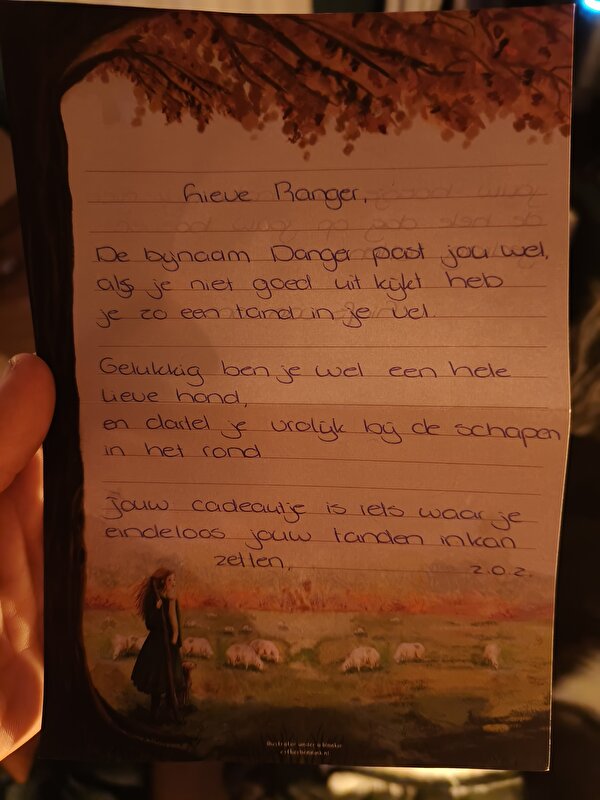 Lieve Ranger,
De bijnaam Danger past jou wel,
als je niet goed uit kijkt heb
je zo een tand in je vel.
Gelukkig ben je wel een hele
lieve hond,
en dartel je vrolijk bij de schapen
in het rond
Jouw cadeautje is iets waar je
eindeloos jouw tanden in kan
zetten,
z.o.z.